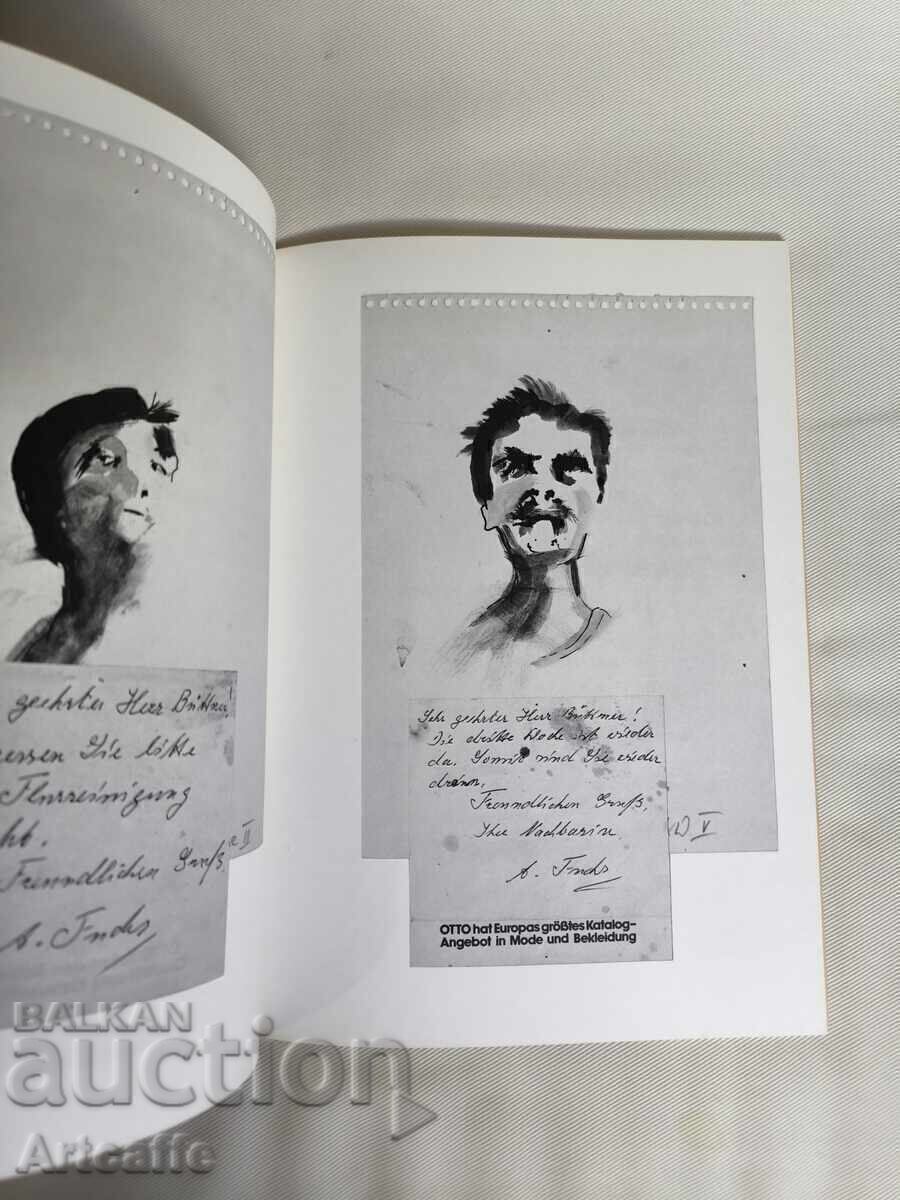 geehrter Herr Büttner!
Sie bitte
Flurreinigung
Freundlichen Gruß,
A. Fuchs
Sehr geehrter Herr Büttner!
Die dritte Woche ist wieder
da. Somit sind Sie wieder
dran.
Freundlichen Gruß,
Ihre Nachbarin
A. Fuchs
V
OTTO hat Europas größtes Katalog-
Angebot in Mode und Bekleidung
BALKAN
auction
Artcaffe